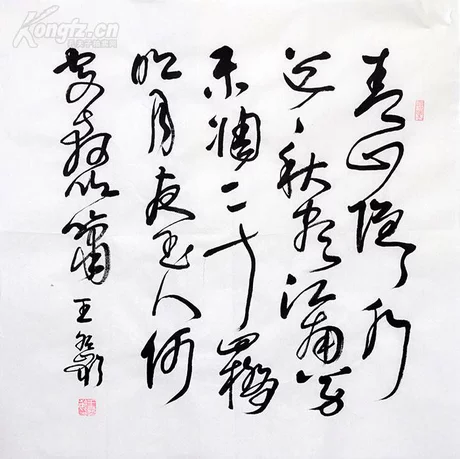 Kongfz.cn
青山隐〻水
迢〻秋尽江南草
未凋二十四橋
明月夜玉人何
处教吹簫 王